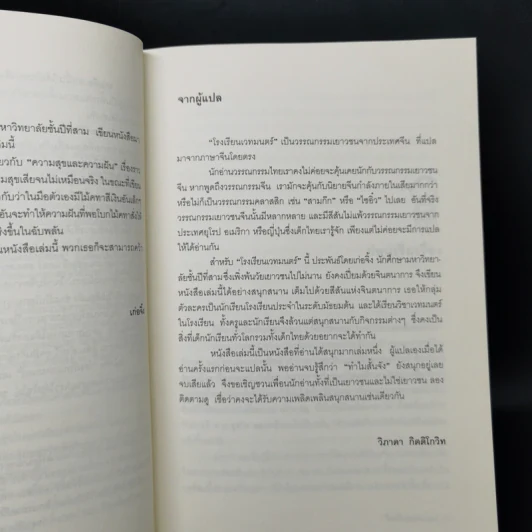 หาวิทยาลัยชั้นปีที่สาม เขียนหนังสือมา
มนี้
ยวกับ "ความสุขและความฝัน" เรื่องราว
มสุขเสียจนไม่เหมือนจริง ในขณะที่เขียน
กับว่าในมือตัวเองมีไม้คทาสีเงินอันหนึ่ง
อันจะทำให้ความฝันที่พอโบกไม้คทาสิ่งใ
ซึ่งขึ้นในฉับพลัน
นหนังสือเล่มนี้ พวกเธอก็จะสามารถคว้า
เก่อจิ้ง
จากผู้แปล
"โรงเรียนเวทมนตร์" เป็นวรรณกรรมเยาวชนจากประเทศจีน ที่แปล
มาจากภาษาจีนโดยตรง
นักอ่านวรรณกรรมไทยเราคงไม่ค่อยจะคุ้นเคยนักกับวรรณกรรมเยาวชน
จีน หากพูดถึงวรรณกรรมจีน เรามักจะคุ้นกับนิยายจีนกำลังภายในเสียมากกว่า
หรือไม่ก็เป็นวรรณกรรมคลาสสิก เช่น "สามก๊ก" หรือ "ไซอิ๋ว" ไปเลย อันที่จริง
วรรณกรรมเยาวชนจีนนั้นมีหลากหลาย และมีสีสันไม่แพ้วรรณกรรมเยาวชนจาก
ประเทศยุโรป อเมริกา หรือญี่ปุ่นซึ่งเด็กไทยเรารู้จัก เพียงแต่ไม่ค่อยจะมีการแปล
ให้ได้อ่านกัน
สำหรับ "โรงเรียนเวทมนตร์" นี้ ประพันธ์โดยเก่อจิ้ง นักศึกษามหาวิทยา-
ลัยชั้นปีที่สามซึ่งเพิ่งพ้นวัยเยาวชนไปไม่นาน ยังคงเปี่ยมด้วยจินตนาการ จึงเขียน
หนังสือเล่มนี้ได้อย่างสนุกสนาน เต็มไปด้วยสีสันแห่งจินตนาการ เธอให้กลุ่ม
ตัวละครเป็นนักเรียนโรงเรียนประจำในระดับมัธยมต้น และได้เรียนวิชาเวทมนตร์
ในโรงเรียน ทั้งครูและนักเรียนจึงล้วนแต่สนุกสนานกับกิจกรรมต่างๆ ซึ่งคงเป็น
สิ่งที่เด็กนักเรียนทั่วโลกรวมทั้งเด็กไทยด้วยอยากจะได้ทำกัน
หนังสือเล่มนี้เป็นหนังสือที่อ่านได้สนุกมากเล่มหนึ่ง ผู้แปลเองเมื่อได้
อ่านครั้งแรกก่อนจะแปลนั้น พออ่านจบรู้สึกว่า "ทำไมสั้นจัง" ยังสนุกอยู่เลย
จบเสียแล้ว จึงขอเชิญชวนเพื่อนนักอ่านทั้งที่เป็นเยาวชนและไม่ใช่เยาวชน ลอง
ติดตามดู เชื่อว่าคงจะได้รับความเพลิดเพลินสนุกสนานเช่นเดียวกัน
วิภาดา กิตติโกวิท